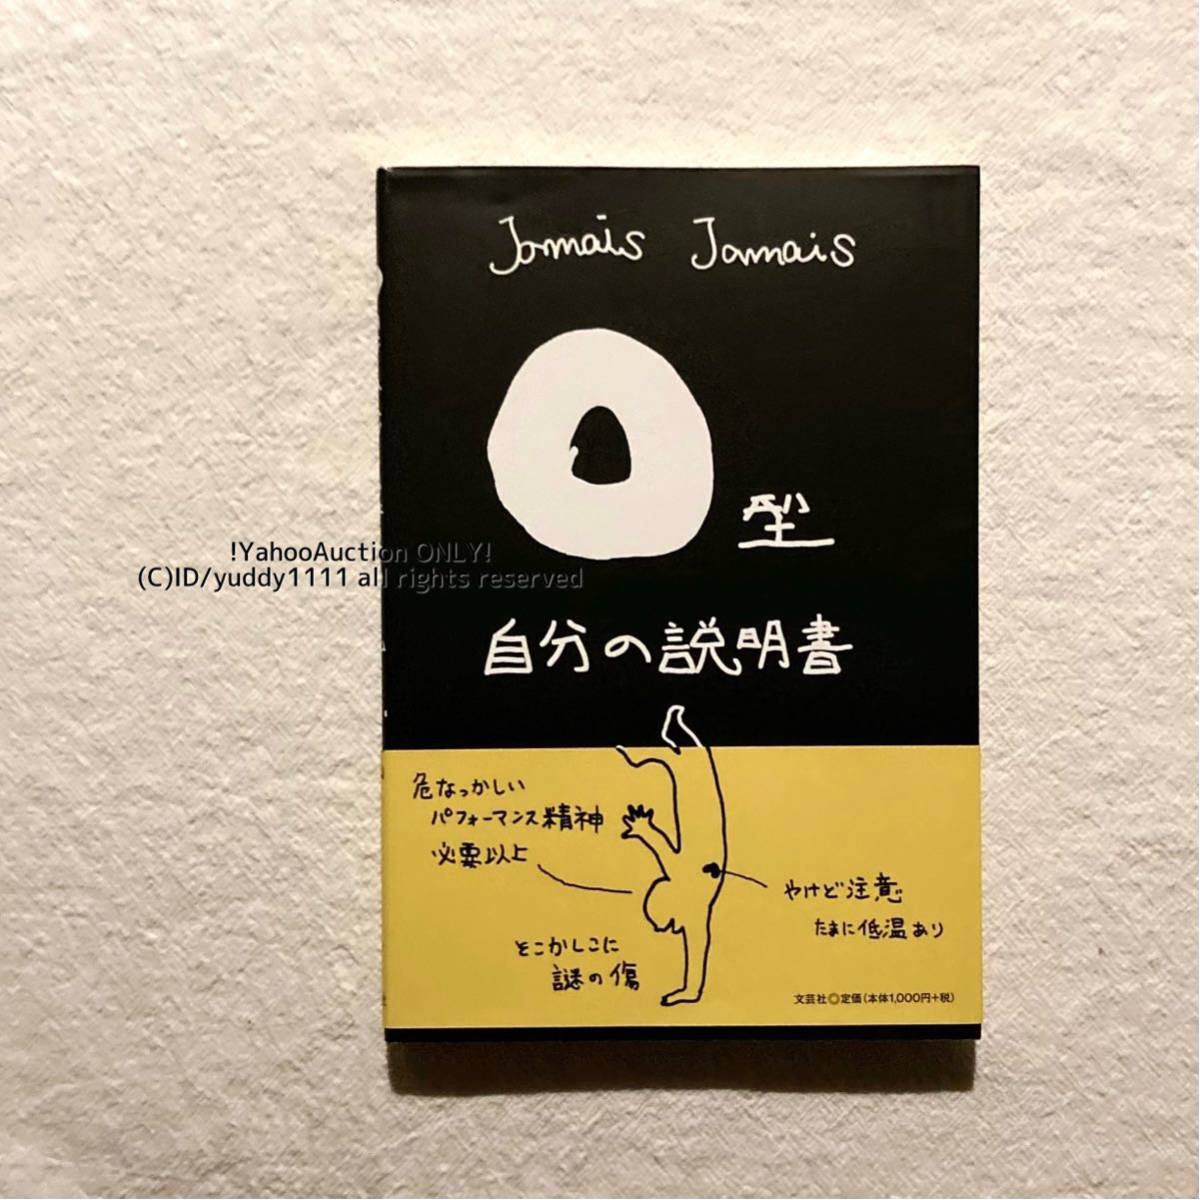 Jamais Jamais
O型
自分の説明書
!YahooAuction ONLY!
(C)ID/yuddy1111 all rights reserved
危なっかしい
パフォーマンス精神
必要以上
やけど注意
たまに低温あり
そこかしこに
謎の傷
文芸社◎定価(本体1,000円+税)